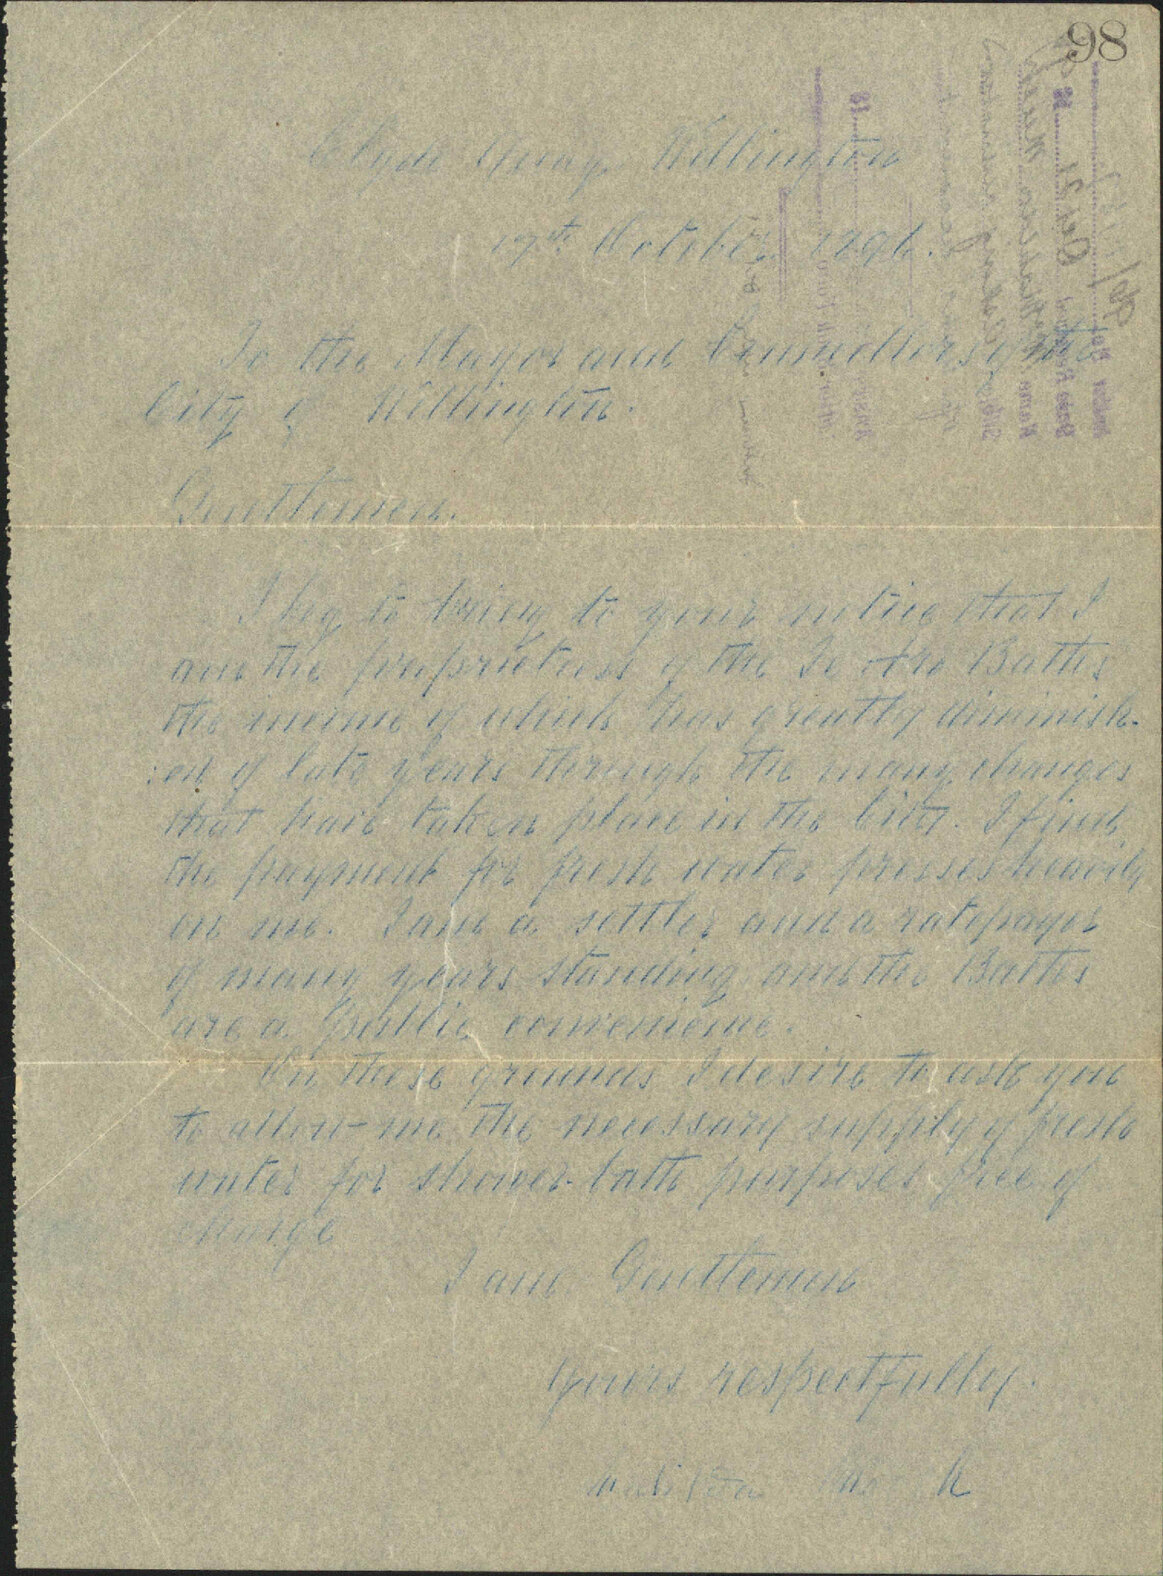 98
Clyde Quay, Wellington
19th October 1896.
To the Mayor and Councillors of the
City of Wellington.
Gentlemen.
I beg to bring to your notice that I
am the proprietress of the Te Aro Baths
the income of which has greatly diminish-
:ed of late years through the many changes
that have taken place in the City. I find
the payment for fresh water presses heavily
on me. I am a settler and a ratepayer
of many years standing and the Baths
are a public convenience.
On these grounds I desire to ask you
to allow me the necessary supply of fresh
water for shower-bath purposes free of
charge
I am Gentlemen
Yours respectfully.